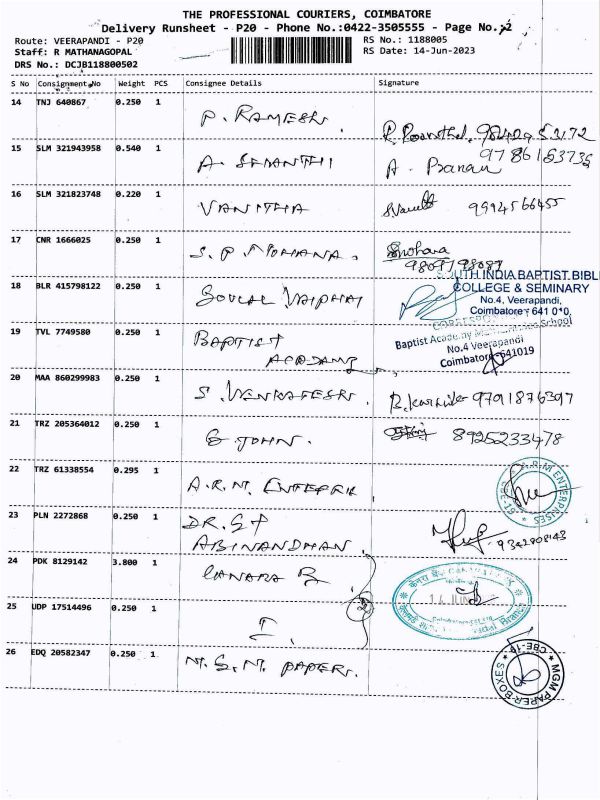 THE PROFESSIONAL COURIERS, COIMBATORE
Delivery Runsheet - P20 - Phone No.:0422-3505555 - Page No.:2
Route: VEERAPANDI - P20
RS No.: 1188005
Staff: R MATHANAGOPAL
RS Date: 14-Jun-2023
DRS No.: DCJB118800502
S No Consignment No Weight PCS Consignee Details Signature
14 TNJ 640867 0.250 1 P. RAMESH.
15 SLM 321943958 0.540 1
16 SLM 321823748 0.220 1 VANITHA 9994566455
17 CNR 1666025 0.250 1 S. P. MOHANA.
SOUTH INDIA BAPTIST BIBL
18 BLR 415798122 0.250 1
COLLEGE & SEMINARY
No.4, Veerapandi,
Coimbatore - 641 0
19 TVL 7749580 0.250 1 BAPTIST
Baptist Academy School
No.4 Veerapandi
Coimbatore 641019
20 MAA 860299983 0.250 1 S. VENKATESH. 9791876397
21 TRZ 205364012 0.250 1 G JOHN. 8925233478
22 TRZ 61338554 0.295 1 A.R.M.
A.R.M ENTERPRISES
23 PLN 2272868 0.250 1 DR. G P
ABINANDHAN
24 PDK 8129142 3.800 1 CANARA B
25 UDP 17514496 0.250 1
26 EDQ 20582347 0.250 1 M. G. M. PAPER.
MGM PAPER BOXES CBE-19